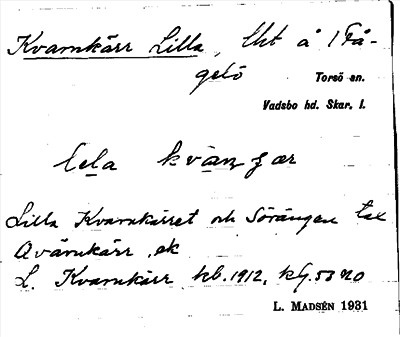 Kvarnkärr Lilla, lht å Få-
gelö
Torsö sn.
Vadsbo hd. Skar. l.
lela kvanʒar
Lilla Kvarnkärret och Sörängen tax
Qvärnkärr ek
L. Kvarnkärr kb. 1912, kf. 53 NO
L. MADSÉN 1931